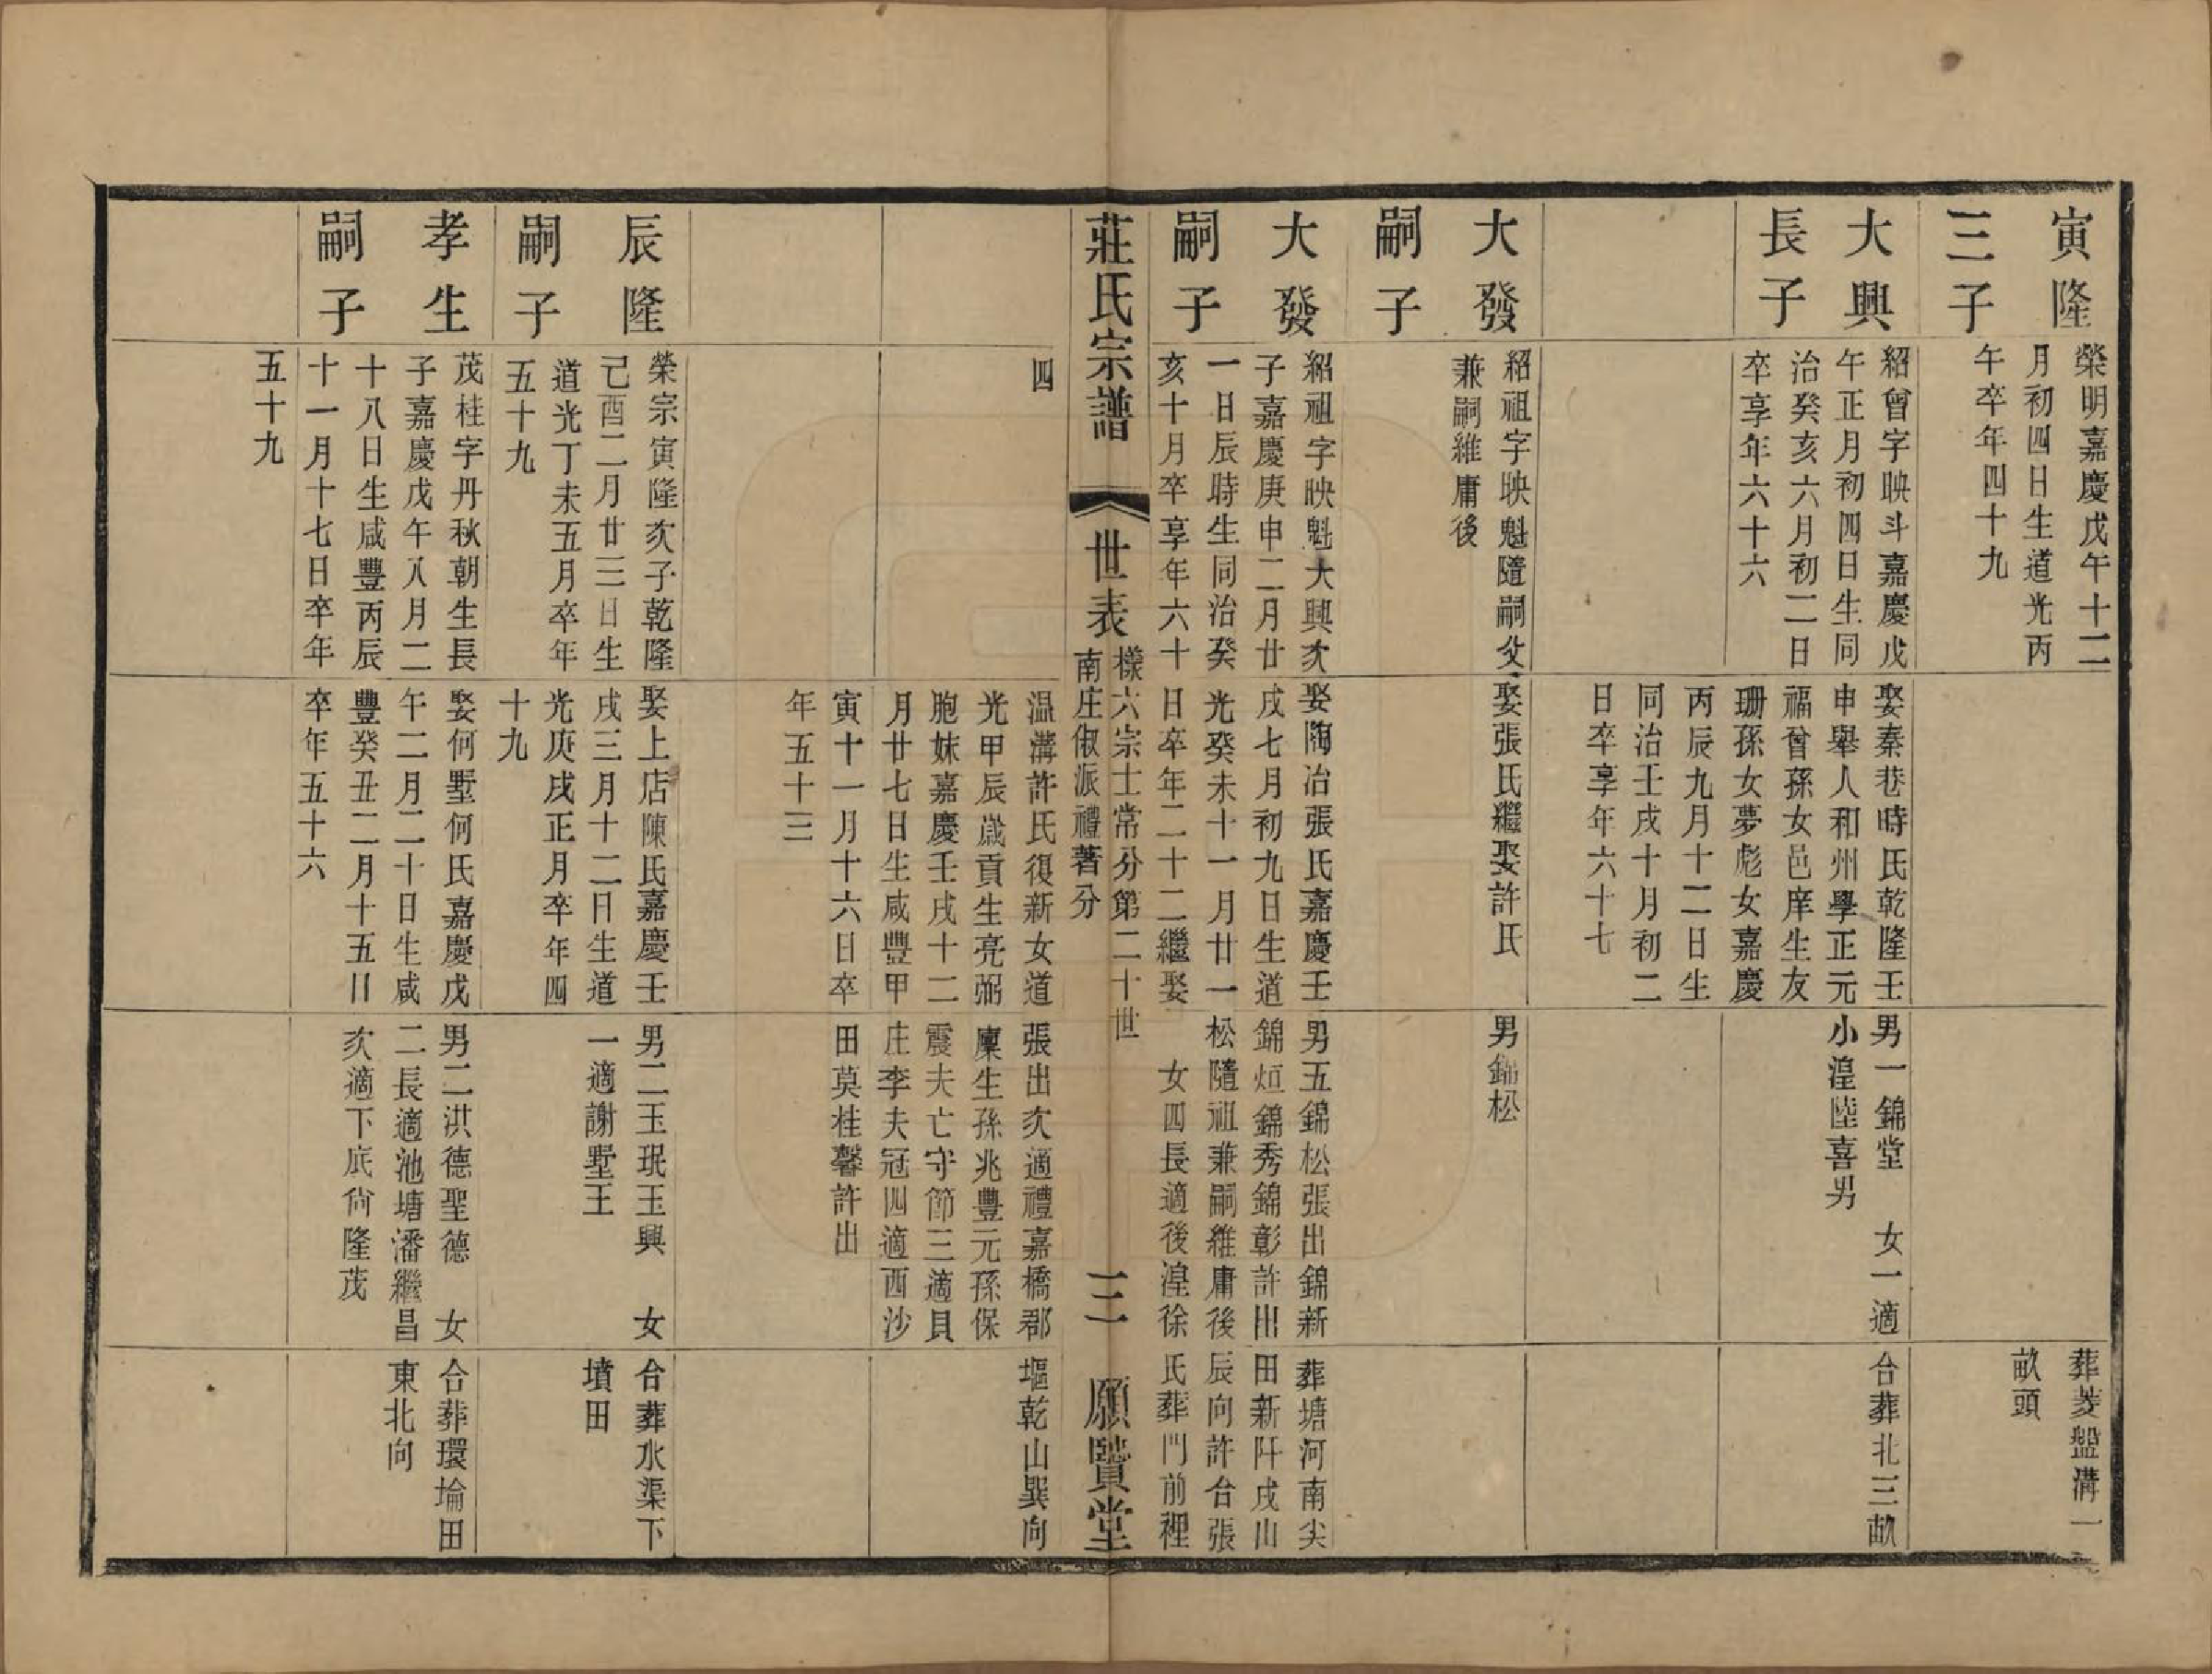 寅隆
三子
榮明嘉慶戊午十二
月初四日生道光丙
午卒年四十九
葬菱盤溝一
畝頭
大興
長子
紹曾字映斗嘉慶戊
午正月初四日生同
治癸亥六月初二日
卒享年六十六
娶秦巷時氏乾隆壬
申舉人和州學正元
福曾孫女邑庠生友
珊孫女夢彪女嘉慶
丙辰九月十二日生
同治壬戌十月初二
日卒享年六十七
男一錦堂 女一適
小湟陸喜男
合葬北三畝
大發
嗣子
紹祖字映魁隨嗣父
兼嗣維庸後
娶張氏繼娶許氏
男錦松
大發
嗣子
紹祖字映魁大興次
子嘉慶庚申二月廿
一日辰時生同治癸
亥十月卒享年六十
四
娶陶冶張氏嘉慶壬
戌七月初九日生道
光癸未十一月廿一
日卒年二十二繼娶
温溝許氏復新女道
光甲辰歲貢生亮弼
胞妹嘉慶壬戌十二
月廿七日生咸豐甲
寅十一月十六日卒
年五十三
男五錦松張出錦新
錦烜錦秀錦彰許出
松隨祖兼嗣維庸後
女四長適後湟徐
張出次適禮嘉橋郡
廩生孫兆豐元孫保
震夫亡守節三適貝
庄李夫冠四適西沙
田莫桂馨許出
葬塘河南尖
田新阡戌山
辰向許合張
氏葬門前裡
堰乾山巽向
莊氏宗譜
世表
樣六宗士常分第二十世
南庄俶派禮著分
三
願賢堂
辰隆
嗣子
榮宗寅隆次子乾隆
己酉二月廿三日生
道光丁未五月卒年
五十九
娶上店陳氏嘉慶壬
戌三月十二日生道
光庚戌正月卒年四
十九
男二玉珉玉興 女
一適謝墅王
合葬水渠下
墳田
孝生
嗣子
茂桂字丹秋朝生長
子嘉慶戊午八月二
十八日生咸豐丙辰
十一月十七日卒年
五十九
娶何墅何氏嘉慶戊
午二月二十日生咸
豐癸丑二月十五日
卒年五十六
男二洪德聖德 女
二長適池塘潘繼昌
次適下底尙隆茂
合葬環埨田
東北向